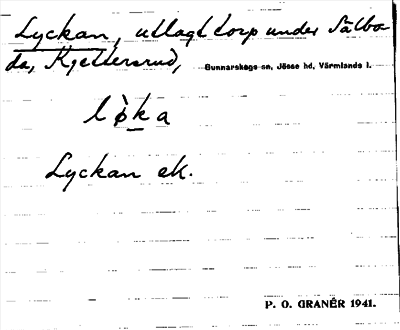 Lyckan, utlagt torp under Sälbo-
da, Kjellersrud, Gunnarskogs sn, Jösse hd, Värmlands l.
l ò k a
Lyckan ek.
P. O. GRANÉR 1941.